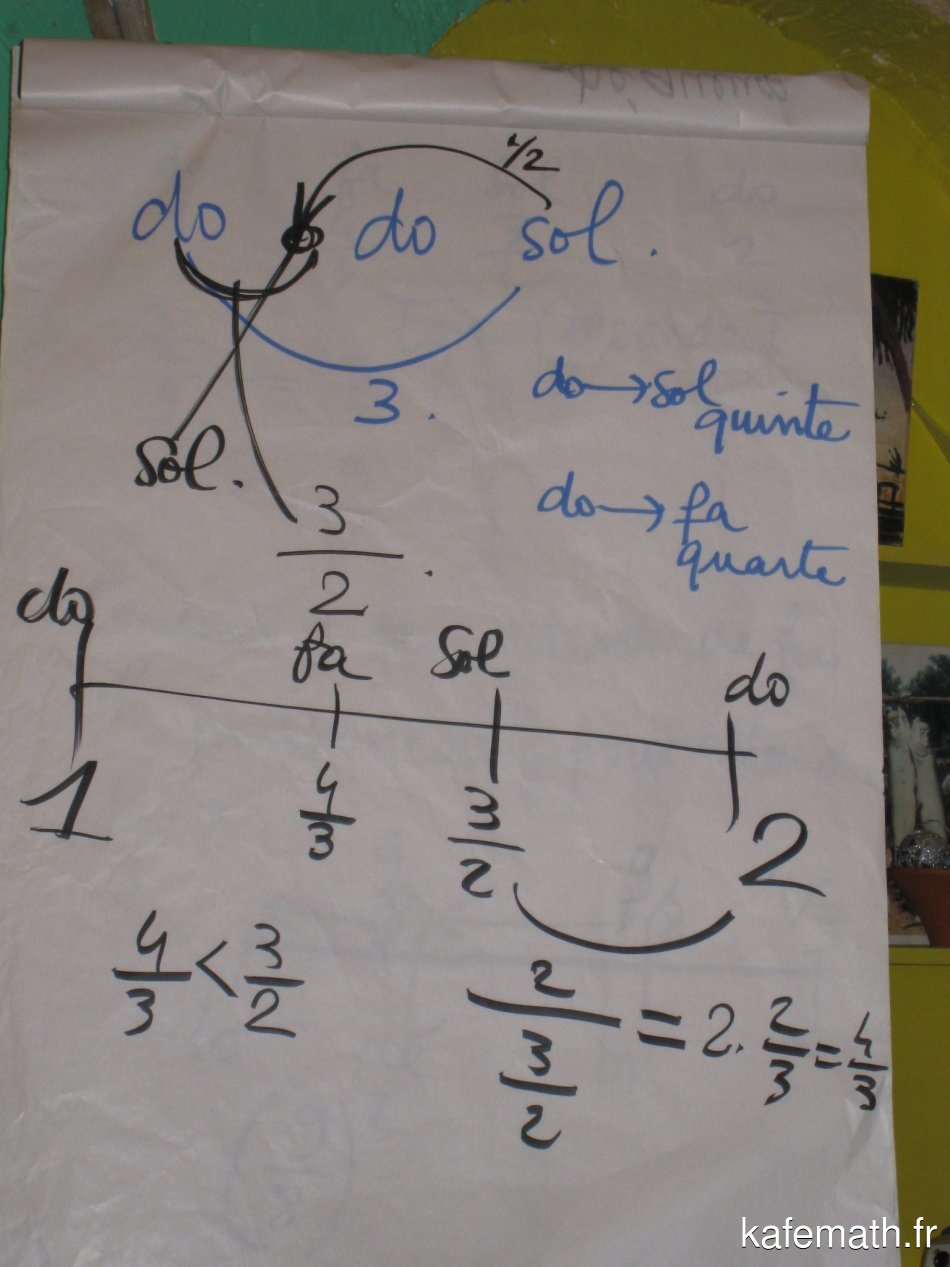 1/2
do do sol.
3.
do → sol
quinte
sol.
do → fa
quarte
3/2.
do fa sol do
1 4/3 3/2 2
4/3 < 3/2
2/(3/2) = 2 . 2/3 = 4/3
kafemath.fr